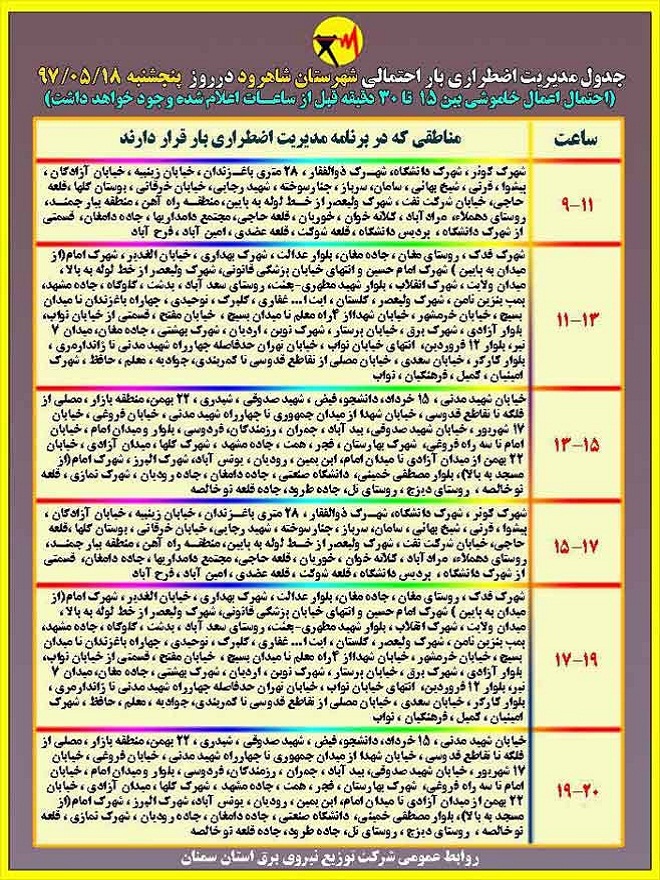 جدول مدیریت اضطراری بار احتمالی شهرستان شاهرود درروز پنجشنبه ۹۷/۰۵/۱۸
(احتمال اعمال خاموشی بین ۱۵ تا ۳۰ دقیقه قبل از ساعات اعلام شده وجود خواهد داشت)
ساعت
مناطقی که در برنامه مدیریت اضطراری بار قرار دارند
۹-۱۱
شهرک کوثر ، شهرک دانشگاه، شهرک ذوالفقار ، ۲۸ متری باغزندان ، خیابان زینبیه ، خیابان آزادگان ،
پیشوا ، قرنی ، شیخ بهائی ، سامان، سرباز ، چنارسوخته ، شهید رجایی، خیابان خرقانی ، بوستان گلها ،قلعه
حاجی، خیابان شرکت نفت ، شهرک ولیعصر از خط لوله به پایین، منطقه راه آهن ، منطقه بیار جمند،
روستای دهملاء، مراد آباد ، کلاته خوان ، خوریان ، قلعه حاجی، مجتمع دامداریها ، جاده دامغان، قسمتی
از شهرک دانشگاه ، پردیس دانشگاه ، قلعه شوکت ، قلعه عضدی ، امین آباد ، فرح آباد
۱۱-۱۳
شهرک قدک ، روستای مغان ، جاده مغان، بلوار عدالت ، شهرک بهداری ، خیابان الغدیر ، شهرک امام(از
میدان به پایین ) شهرک امام حسین و انتهای خیابان پزشکی قانونی، شهرک ولیعصر از خط لوله به بالا ،
میدان ولایت ، شهرک انقلاب ، بلوار شهید مطهری-بعثت، روستای سعد آباد ، بدشت ، کلوگاه ، جاده مشهد،
پمپ بنزین ثامن ، شهرک ولیعصر ، گلستان ، ایت ا... غفاری ، گلبرک ، توحیدی ، چهاراه باغزندان تا میدان
بسیج ، خیابان خرمشهر ، خیابان شهدااز ۳راه معلم تا میدان بسیج ، خیابان مفتح ، قسمتی از خیابان نواب،
بلوار آزادی ، شهرک برق ، خیابان پرستار ، شهرک نوین ، اردیان ، شهرک بهشتی ، جاده مغان، میدان ۷
تیر، بلوار ۱۲ فروردین، انتهای خیابان نواب ، خیابان تهران حدفاصله چهارراه شهید مدنی تا ژاندارمری ،
بلوار کارگر ، خیابان سعدی ، خیابان مصلی از تقاطع قدوسی تا کمربندی، جوادیه ، معلم ، حافظ ، شهرک
امینیان ، کمیل ، فرهنگیان ، نواب
۱۳-۱۵
خیابان شهید مدنی ، ۱۵ خرداد، دانشجو، فیض ، شهید صدوقی ، شیدری ، ۲۲ بهمن، منطقه بازار ، مصلی از
فلکه تا تقاطع قدوسی ، خیابان شهدا از میدان جمهوری تا چهارراه شهید مدنی ، خیابان فروغی ، خیابان
۱۷ شهریور ، خیابان شهید صدوقی، بید آباد ، چمران ، رزمندگان، فردوسی ، بلوار و میدان امام ، خیابان
امام تا سه راه فروغی، شهرک بهارستان ، فجر ، همت ، جاده مشهد ، شهرک گلها ، میدان آزادی ، خیابان
۲۲ بهمن از میدان آزادی تا میدان امام، ابن یمین ، رودیان ، یونس آباد، شهرک البرز ، شهرک امام(از
مسجد به بالا)، بلوار مصطفی خمینی، دانشگاه صنعتی ، جاده دامغان ، جاده رودیان ، شهرک نمازی ، قلعه
نو خالصه ، روستای دیزج ، روستای تل، جاده طرود، جاده قلعه نو خالصه
۱۵-۱۷
شهرک کوثر ، شهرک دانشگاه، شهرک ذوالفقار ، ۲۸ متری باغزندان ، خیابان زینبیه ، خیابان آزادگان ،
پیشوا ، قرنی ، شیخ بهائی ، سامان، سرباز ، چنارسوخته ، شهید رجایی، خیابان خرقانی ، بوستان گلها ،قلعه
حاجی، خیابان شرکت نفت ، شهرک ولیعصر از خط لوله به پایین، منطقه راه آهن ، منطقه بیار جمند،
روستای دهملاء، مراد آباد ، کلاته خوان ، خوریان ، قلعه حاجی، مجتمع دامداریها ، جاده دامغان، قسمتی
از شهرک دانشگاه ، پردیس دانشگاه ، قلعه شوکت ، قلعه عضدی ، امین آباد ، فرح آباد
۱۷-۱۹
شهرک قدک ، روستای مغان ، جاده مغان، بلوار عدالت ، شهرک بهداری ، خیابان الغدیر ، شهرک امام(از
میدان به پایین ) شهرک امام حسین و انتهای خیابان پزشکی قانونی، شهرک ولیعصر از خط لوله به بالا ،
میدان ولایت ، شهرک انقلاب ، بلوار شهید مطهری-بعثت، روستای سعد آباد ، بدشت ، کلوگاه ، جاده مشهد،
پمپ بنزین ثامن ، شهرک ولیعصر ، گلستان ، ایت ا... غفاری ، گلبرک ، توحیدی ، چهاراه باغزندان تا میدان
بسیج ، خیابان خرمشهر ، خیابان شهدااز ۳راه معلم تا میدان بسیج ، خیابان مفتح ، قسمتی از خیابان نواب،
بلوار آزادی ، شهرک برق ، خیابان پرستار ، شهرک نوین ، اردیان ، شهرک بهشتی ، جاده مغان، میدان ۷
تیر، بلوار ۱۲ فروردین، انتهای خیابان نواب ، خیابان تهران حدفاصله چهارراه شهید مدنی تا ژاندارمری ،
بلوار کارگر ، خیابان سعدی ، خیابان مصلی از تقاطع قدوسی تا کمربندی، جوادیه ، معلم ، حافظ ، شهرک
امینیان ، کمیل ، فرهنگیان ، نواب
۱۹-۲۰
خیابان شهید مدنی ، ۱۵ خرداد، دانشجو، فیض ، شهید صدوقی ، شیدری ، ۲۲ بهمن، منطقه بازار ، مصلی از
فلکه تا تقاطع قدوسی ، خیابان شهدا از میدان جمهوری تا چهارراه شهید مدنی ، خیابان فروغی ، خیابان
۱۷ شهریور ، خیابان شهید صدوقی، بید آباد ، چمران ، رزمندگان، فردوسی ، بلوار و میدان امام ، خیابان
امام تا سه راه فروغی، شهرک بهارستان ، فجر ، همت ، جاده مشهد ، شهرک گلها ، میدان آزادی ، خیابان
۲۲ بهمن از میدان آزادی تا میدان امام، ابن یمین ، رودیان ، یونس آباد، شهرک البرز ، شهرک امام(از
مسجد به بالا)، بلوار مصطفی خمینی، دانشگاه صنعتی ، جاده دامغان ، جاده رودیان ، شهرک نمازی ، قلعه
نو خالصه ، روستای دیزج ، روستای تل، جاده طرود، جاده قلعه نو خالصه
روابط عمومی شرکت توزیع نیروی برق استان سمنان